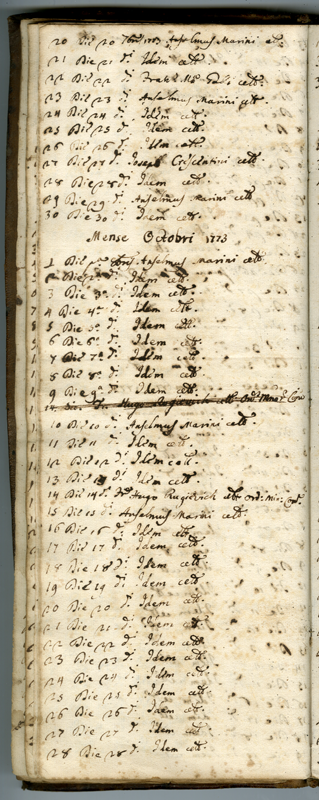 20 Die 20 7bris 1773 Anselmus Marini cel.
21 Die 21 di. Idem celb.
22 Die 22 di. celb.
23 Die 23 di. Anselmus Marini celb.
24 Die 24 di. Idem celb.
25 Die 25 di. Idem celb.
26 Die 26 di. Idem celb.
27 Die 27 di. Joseph celb.
28 Die 28 di. Idem celb.
29 Die 29 di. Anselmus Marini celb.
30 Die 30 di. Idem celb.
Mense Octobri 1773
1 Die pa. 8bris Anselmus Marini celb.
Die 2a di. Idem celb.
3 Die 3a di. Idem celb.
4 Die 4a di. Idem celb.
5 Die 5a di. Idem celb.
6 Die 6a di. Idem celb.
7 Die 7a di. Idem celb.
8 Die 8a di. Idem celb.
9 Die 9a di. Idem celb.
14 di. Hugo celb. Ord.
10 Die 10 di. Anselmus Marini celb.
11 Die 11 di. Idem celb.
12 Die 12 di. Idem celb.
13 Die 13 di. Idem celb.
14 Die 14 di. Hugo Rugievich celb. Ord: Min:
15 Die 15 di. Anselmus Marini celb.
16 Die 16 di. Idem celb.
17 Die 17 di. Idem celb.
18 Die 18 di. Idem celb.
19 Die 19 di. Idem celb.
20 Die 20 di. Idem celb.
21 Die 21 di. Idem celb.
22 Die 22 di. Idem celb.
23 Die 23 di. Idem celb.
24 Die 24 di. Idem celb.
25 Die 25 di. Idem celb.
26 Die 26 di. Idem celb.
27 Die 27 di. Idem celb.
28 Die 28 di. Idem celb.